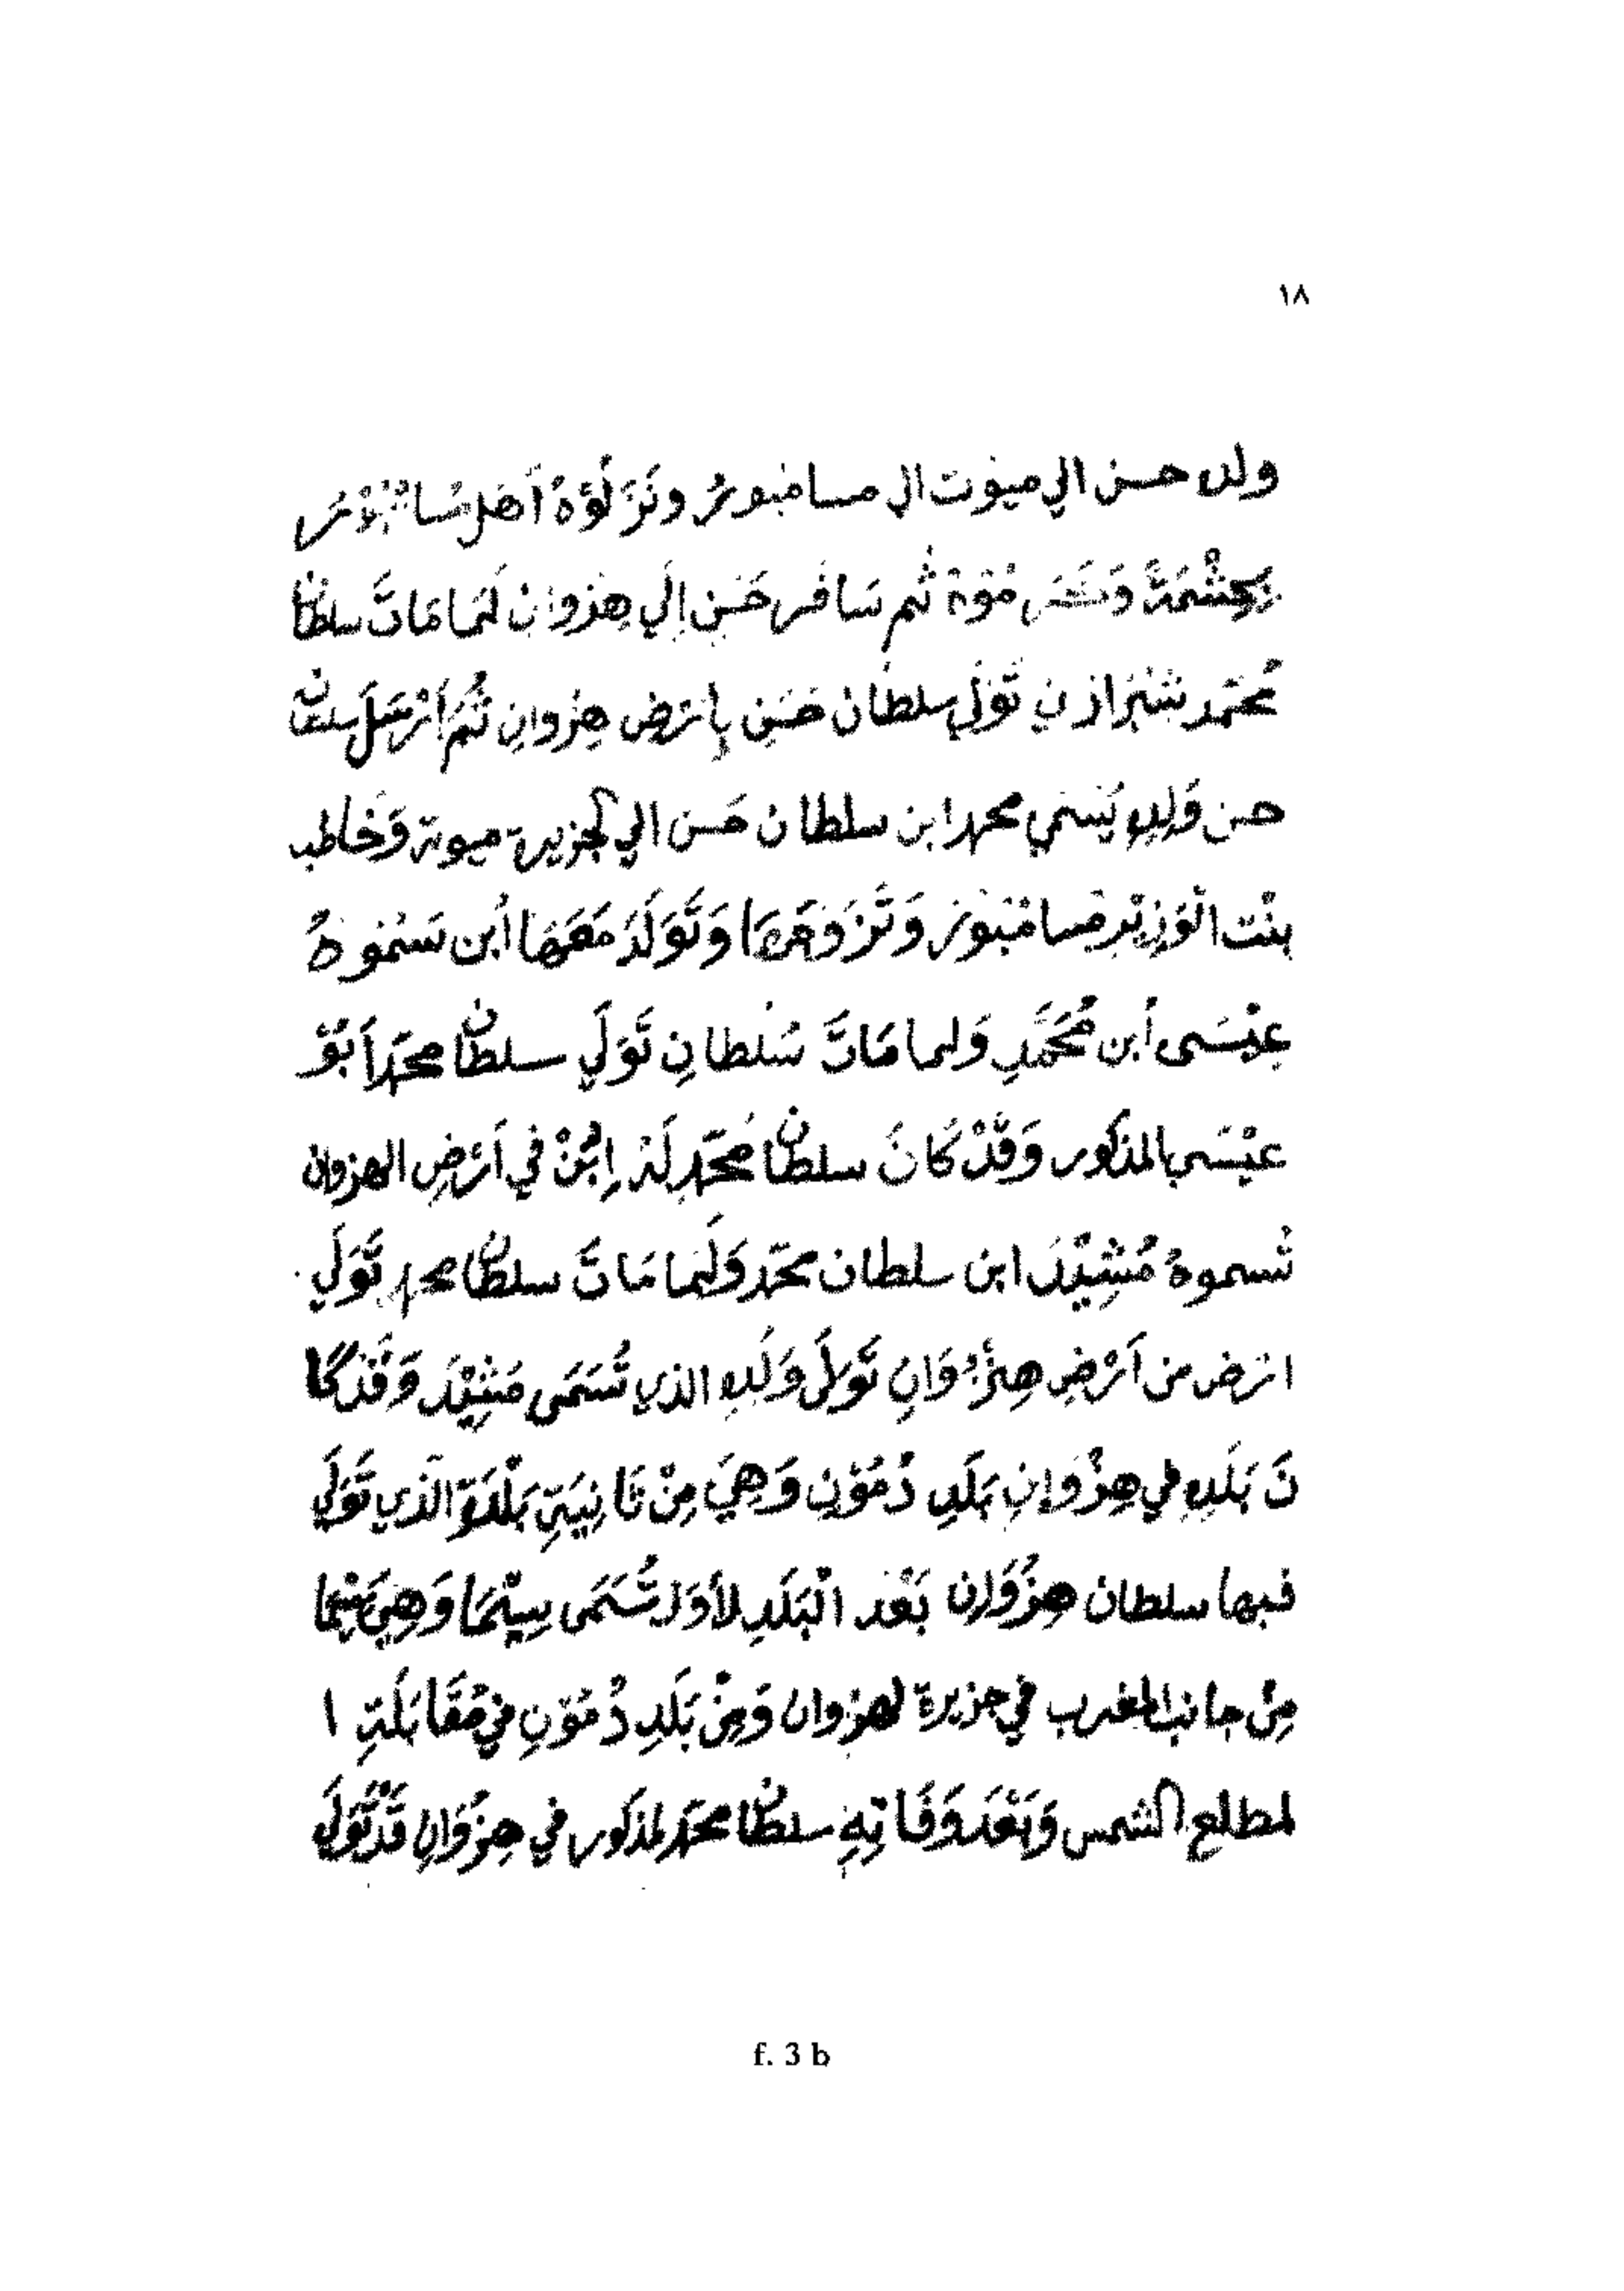 ١٨
ولد حسن الي ميوت ال مسامبور ونَزَلُوْهُ أَهْل مسامبور
بِحِشْمَةً ثم سَافَر حَسَنِ إِلَي هِنْزوان لَمَا مَاتَ سلطان
مُحَمّد شيرازي تَوَلي سلطان حَسَنِ بِارَضِ هِنْزوانِ ثُمَ اَرْسَلَ سلطان
حسن وَلَدِهِ يُسَمي محمد ابن سلطان حَسن الي لجزيرة ميوتة وَخَاطب
بِنْت الوَزِيْر مسامبور وَتَزَوَجَهَا وَتَوَلَدَ مَعَهَا أبن سَمُوهُ
عِيْسَى أبن مُحَمَّدِ وَلما مَاتَ سُلْطانِ تَوَلَي سلطان محمد اَبُوْ
عيْسَى بالمذكور وَقَدْ كَانَ سلطان مُحَمّد لَهُ اِبْنْ في اَرْضِ الهنزوان
تُسموهُ مُشِيْدَ ابن سلطان محمّد وَلَمَا مَاتَ سلطان محمد تَوَلَي
ارَض من اَرْضِ هِنْزُوَانِ تَوَلَى وَلَدِهِ الذي تُسَمَى مُشِيْدَ وَقَدْ كَا
نَ بَلَدِهِ في هِنْزُوَانِ بَلَدِ دُمُوْنِ وَهِيَ مِنْ ثَانِيَةِ بَلْدَةِ الَذي تَوَلَي
فيها سلطان هِنْزُوَان بَعْد الْبَلَدِ لأوَل تُسَمَى سِيْمَا وَهِيَ سِيْمَا
مِنْ جانب المغرب في جزيرة لهنزوان وَمِنْ بَلَدِ دُمُوْنِ في مُقَابَلَةِ ا
لمطلع الشمس وَبَعْدَ وَفَاتِهِ سلطان محمّد لمذكور في هِنْزُوَانِ قَدْ تَوَلَي
f. 3 b